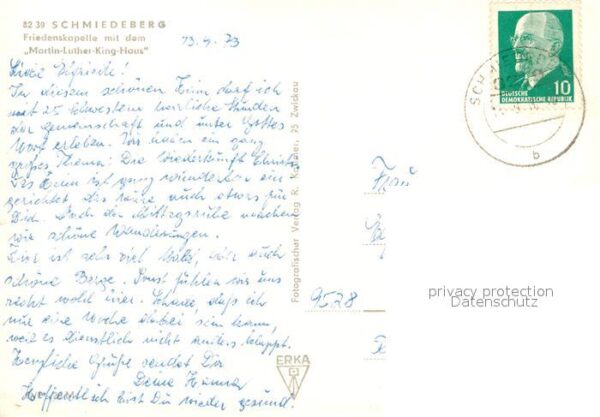 82 39 SCHMIEDEBERG
Friedenskapelle mit dem
„Martin-Luther-King-Haus"
13.4.73
Liebe
In diesem schönen Heim darf ich
mit 25 Schwestern herrliche Stunden
der Gemeinschaft und unter Gottes
Wort erleben. Wir haben ein ganz
großes Thema: Die Wiederkunft Christi
Das Heim ist ganz wunderbar ein
gerichtet. Das wäre auch etwas für
Dich. Nach der Mittagsruhe machen
wir schöne Wanderungen.
Hier ist sehr viel Wald, aber auch
schöne Berge. Sonst fühlen wir uns
recht wohl hier. Schade, daß ich
nur eine Woche dabei sein kann,
weil es dienstlich nicht anders klappt.
Herzliche Grüße sendet Dir
Deine Hanna
Hoffentlich bist Du wieder gesund.
Fotografischer Verlag R. 95 Zwickau
ERKA
DEUTSCHE
DEMOKRATISCHE REPUBLIK
10
b
Frau
9528
privacy protection
Datenschutz